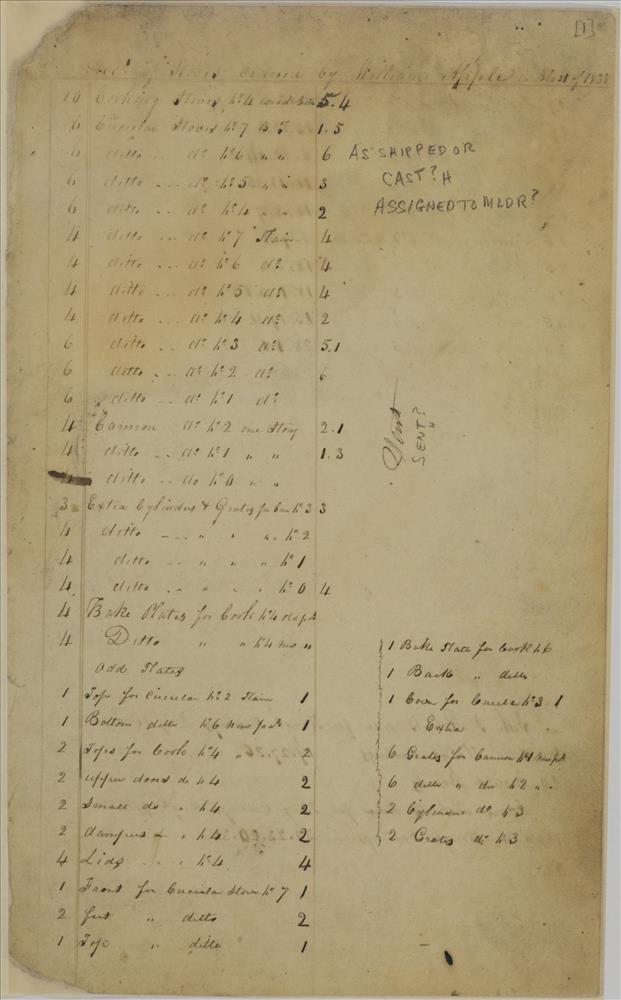 [1]
of Stoves Ordered by William Apple in Blast of 1838
10 Cooking Stoves No 4 5.4
6 Circular Stoves No 7 B.T. 1.5
6 ditto .. do No 6 " " 6
6 ditto .. do No 5 " " 3
6 ditto .. do No 4 " " 2
4 ditto .. do No 7 Plain 4
4 ditto .. do No 6 do 4
4 ditto .. do No 5 do 4
4 ditto .. do No 4 do 2
6 ditto .. do No 3 do 5.1
6 ditto .. do No 2 do 6
6 ditto .. do No 1 do
4 Cannon do No 2 one Story 2.1
4 ditto .. do No 1 " " 1.3
ditto .. do No 0 " "
3 Extra Cylinders & Grates for Can No 3 3
4 ditto .. " " " No 2
4 ditto .. " " " No 1
4 ditto .. " " " No 0 4
4 Bake Plates for Cook No 4 old pat
4 Ditto " " No 4 new "
Odd Plates
1 Top for Circular No 2 Plain 1
1 Bottom ditto No 6 New patt 1
2 Tops for Cook No 4 " 2
2 upper doors do No 4 2
2 Small do " No 4 2
2 dampers " " No 4 2
4 Lids .. " No 4 4
1 Front for Circular Stove No 7 1
2 feet " ditto 2
1 Top " ditto 1
AS SHIPPED OR
CAST? H
ASSIGNED TO MLDR?
Sent
SENT?
H
1 Bake Plate for Cook No 6
1 Back " ditto
1 Cover for Circular No 3 1
Extra
6 Grates for Cannon No 1 New pat
6 ditto " do No 2 " .
2 Cylinders do No 3
2 Grates do No 3